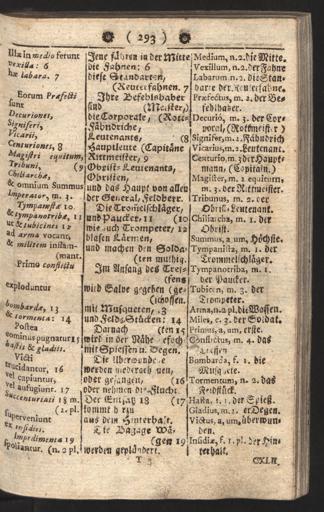 ( 293 )
Illæ in medio ferunt
vexilla: 6
hæ labara. 7
Eorum Præfecti
sunt
Decuriones,
Signiferi,
Vicarii,
Centuriones, 8
Magistri equitum,
Tribuni, (9
Chiliarchæ,
& omnium Summus
Imperator, m. 3.
Tympanistæ 10.
& tympanotribæ, 11
ut & tubicines 12
ad arma vocant,
& militem inflam-
(mant.
Primo conflictu
exploduntur
bombardæ, 13
& tormenta: 14
Postea
cominus pugnatur 15
hastis & gladiis.
Victi
trucidantur, 16
vel capiuntur,
vel aufugiunt. 17
Succenturiati 18 m.
(2. pl.
superveniunt
ex insidiis.
Impedimenta 19
spoliantur. (n. 2. pl
Jene führen in der Mitte
die Fahnen: 6
diese Standarten,
(Reuterfahnen. 7
Ihre Befehlshaber
sind (Meister,)
die Corporale, (Rott-
Fähndriche,
Leutenants, (8
Hauptleute (Capitäne
Rittmeister, 9
Obrist-Leutenants,
Obristen,
und das Haupt von allen
der General, Feldherr.
Die Tromelschläger,
und Paucker, 11 (10
wie auch Trompeter, 12
blasen Lärmen,
und machen den Solda-
(ten muthig.
Im Anfang des Tref-
(fens
wird Salve gegeben (ge-
(schossen.
mit Musqueten, 13
und Feld-Stücken: 14
Darnach (ten 15
wird in der Nähe gefoch
mit Spiessen u. Degen.
Die Uberwundene
werden niedergehauen,
oder gefangen, (16
oder nehmen die Flucht.
Der Entsatz 18 (17
kommt herzu
aus dem Hinterhalt.
Die Bagage Wä-
(gen 19
werden geplündert.
Medium, n. 2. die Mitte.
Vexillum, n. 2. der Fahne
Labarum n. 2. die Stan-
darte der Reuterfahne.
Præfectus, m. 2. der Be-
fehlhaber.
Decurio, m. 3. der Cor-
poral, (Rottmeister)
Signifer, m. 2. Fähndrich
Vicarius, m. 2. Leutenant.
Centurio, m. 3 der Haupt
mann, (Capitain.)
Magister, m. 2. equitum
m. 3. der Rittmeister.
Tribunus, m. 2. der
Obrist-Leutenant.
Chiliarcha, m. 1. der
Obrist.
Summus, 2. um, Höchste.
Tympanista, m. 1. der
Trommelschläger.
Tympanotriba, m. 1.
der Paucker.
Tubicen, m. 3. der
Trompeter.
Arma, n. 2. pl. die Waffen.
Miles, c. 3. der Soldat.
Primus, a, um, erste.
Conflictus, m. 4. das
Treffen.
Bombarda, f. 1. die
Musquete.
Tormentum, n. 2. das
Feldstück.
Hasta, f. 1. der Spieß.
Gladius, m. 2. der Degen.
Victus, a, um, überwun-
den.
Insidiæ, f. 1. pl. der Hin-
terhalt.
T 3
CXLII.